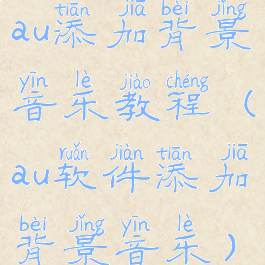 tiān jiā bèi jǐng
au添加背景
yīn lè jiào chéng
音乐教程（
ruǎn jiàn tiān jiā
au软件添加
bèi jǐng yīn lè
背景音乐）